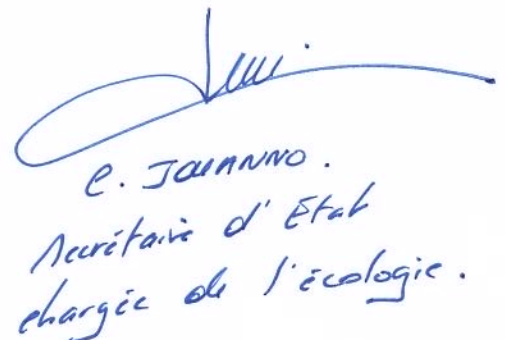 C. JOUANNO.
Secrétaire d'Etat
chargée de l'écologie.